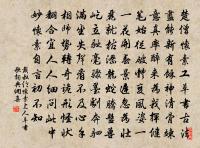 楚僧懷素工草書古法
盡能新有餘神清骨竦
意真率醉來為我揮健
筆始從破體變風姿一
一花開春景遲忽為壯
麗就枯澀龍蛇騰盤獸
屹立馳毫驟墨劇奔駟
滿坐失聲看不及心手
相師勢轉奇詭形怪狀
翻合宜人人細問此中
妙懷素自言初不知
戴叔倫懷素上人草書
歌